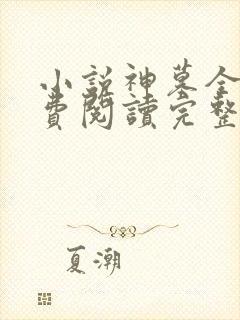 小說神墓全
費閱讀完整
夏潮